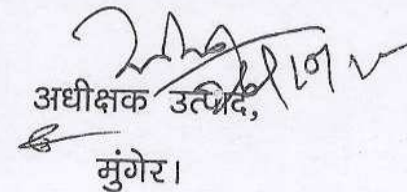 अधीक्षक उत्पाद,
मुंगेर।